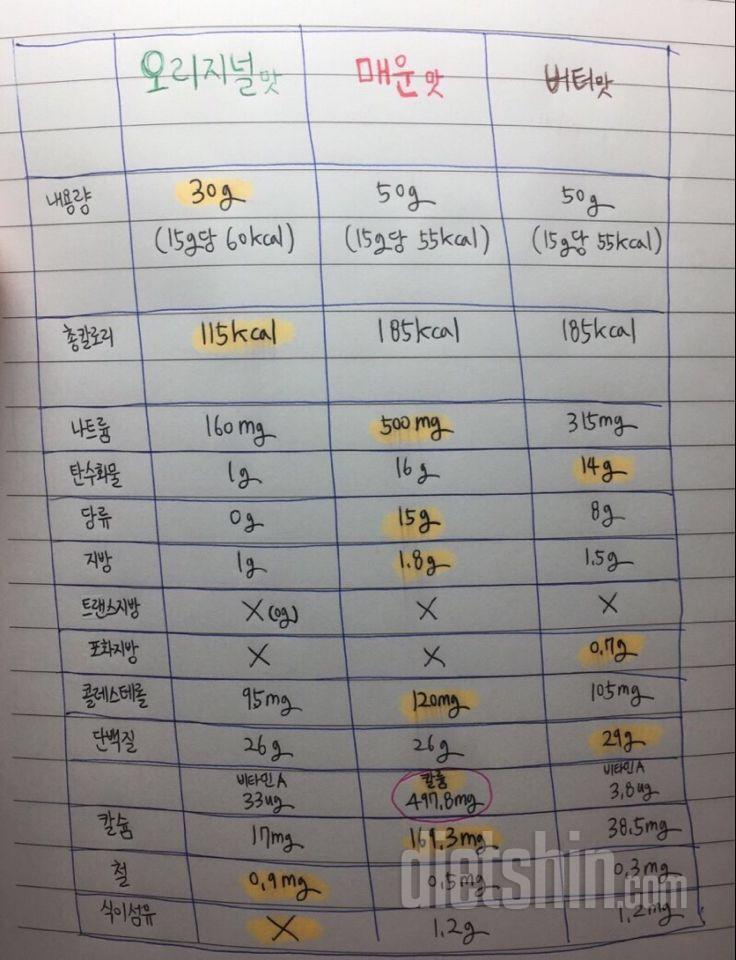 오리지널맛 매운맛 버터맛
내용량 30g 50g 50g
(15g당 60kcal) (15g당 55kcal) (15g당 55kcal)
총칼로리 115kcal 185kcal 185kcal
나트륨 160mg 500mg 315mg
탄수화물 1g 16g 14g
당류 0g 15g 8g
지방 1g 1.8g 1.5g
트랜스지방 X(0g) X X
포화지방 X X 0.7g
콜레스테롤 95mg 120mg 105mg
단백질 26g 26g 29g
비타민A 칼륨 비타민A
33ug 497.8mg 3.8ug
칼슘 17mg 169.3mg 38.5mg
철 0.9mg 0.5mg 0.3mg
식이섬유 X 1.2g 1.2mg
dietshin.com